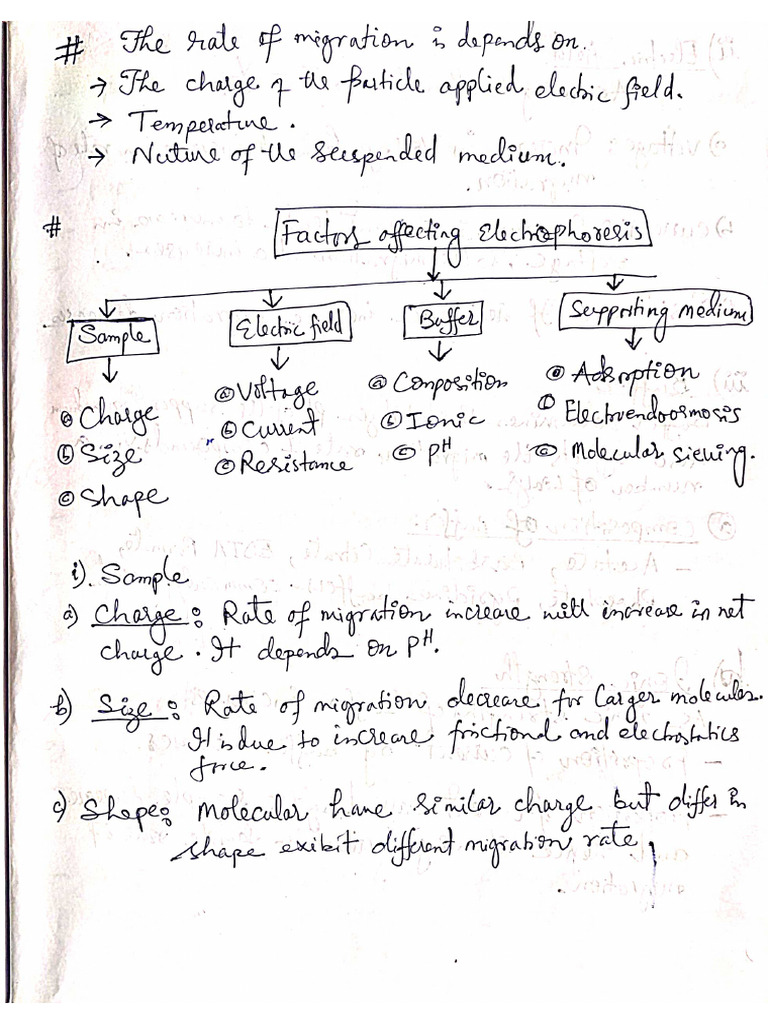 # The rate of migration is depends on.
→ The charge of the particle applied electric field.
→ Temperature.
→ Nuture of the suspended medium.
# Factors affecting Electrophoresis
Sample Electric field Buffer Supporting medium
ⓐ Charge ⓐ Voltage ⓐ Composition ⓐ Adsroption
ⓑ Size ⓑ Current ⓑ Ionic ⓑ Electroendoosmosis
ⓒ Shape ⓒ Resistance ⓒ PH ⓒ Molecular sieving.
i). Sample
a) Charge: Rate of migration increase will increase in net
charge. It depends on PH.
b) Size: Rate of migration decrease for Larger molecules.
It is due to increare frictional and electrostatics
force.
c) Shape: molecular have similar charge but differ in
shape exibit different migration rate